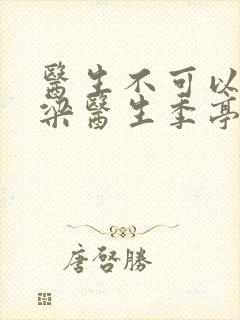 醫生不可以
梁醫生季亭
唐啓勝